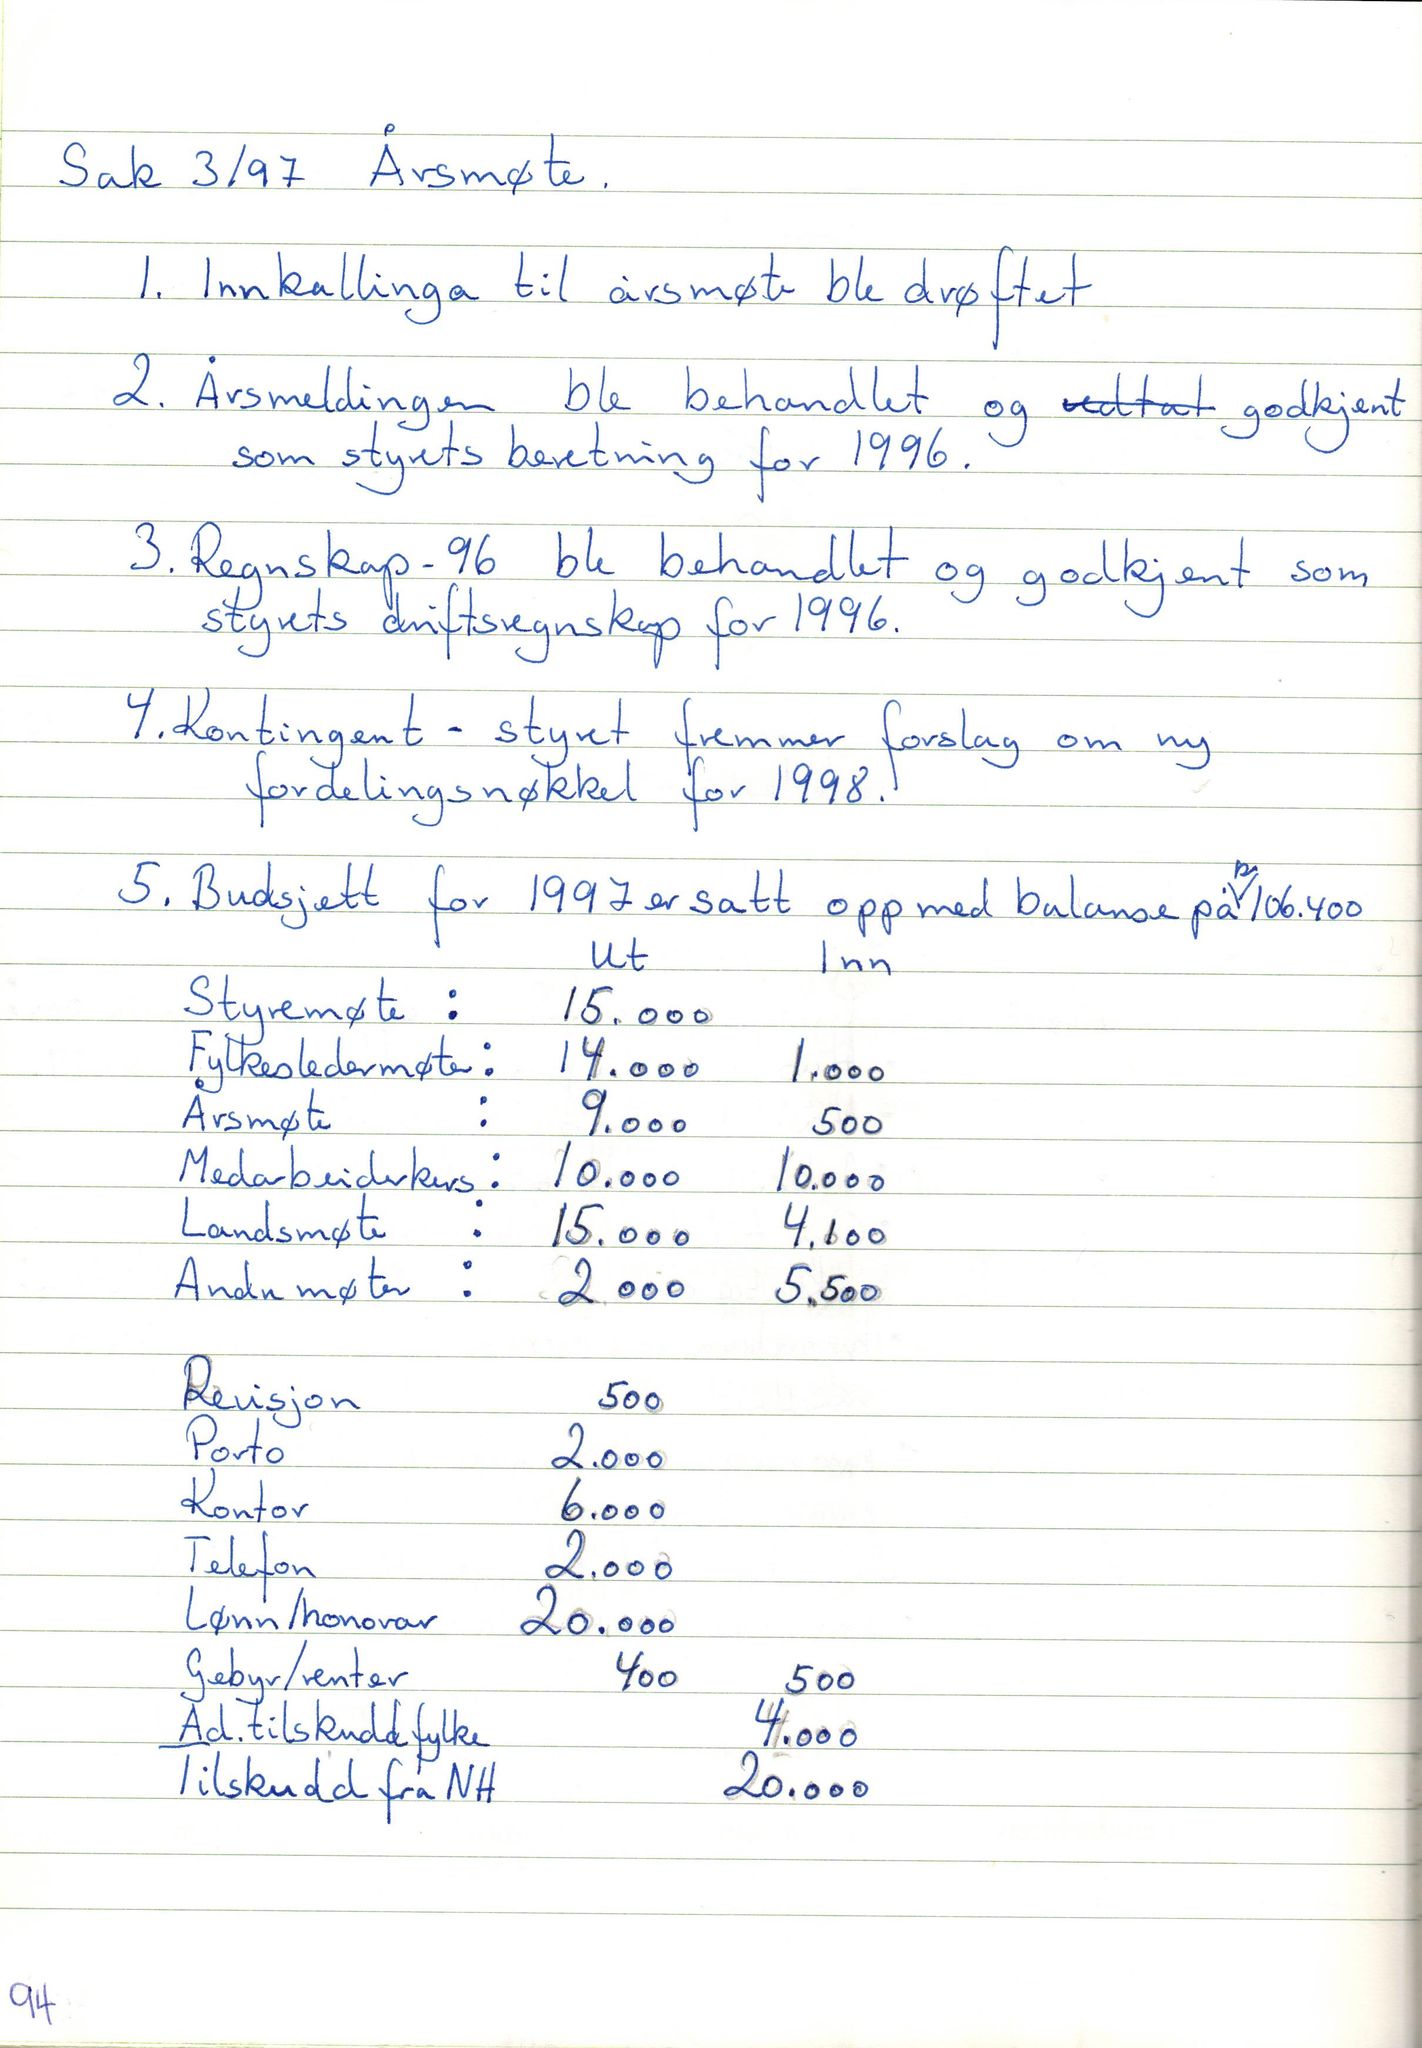 Sak 3/97 Årsmøte.
1. Innkallinga til årsmøte ble drøftet
2. Årsmeldingen ble behandlet og vedtat godkjent
som styrets beretning for 1996.
3. Regnskap-96 ble behandlet og godkjent som
styrets driftsregnskap for 1996.
4. Kontingent - styret fremmer forslag om ny
fordelingsnøkkel for 1998.
5. Budsjett for 1997 er satt opp med balanse på kr 106.400
Ut Inn
Styremøte : 15.000
Fylkesledermøte: 14.000 1.000
Årsmøte : 9.000 500
Medarbeiderkurs: 10.000 10.000
Landsmøte : 15.000 4.100
Andre møter : 2 000 5.500
Revisjon 500
Porto 2.000
Kontor 6.000
Telefon 2.000
Lønn/honorar 20.000
Gebyr/renter 400 500
Ad. tilskudd fylke 4.000
Tilskudd fra NH 20.000
94